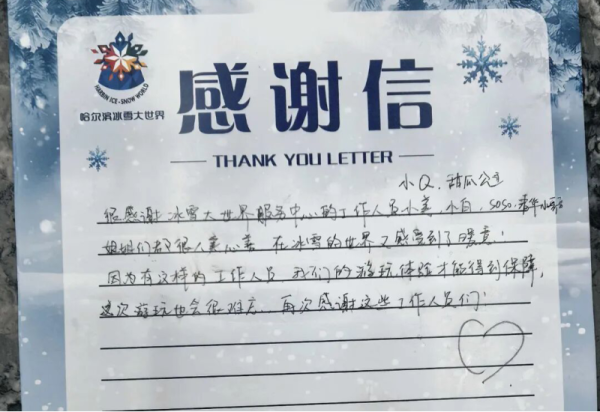 HARBIN ICE-SNOW WORLD
哈尔滨冰雪大世界
感谢信
THANK YOU LETTER
小Q、甜瓜公主
很感谢冰雪大世界服务中心的工作人员小美、小白、SOSO、
姐姐们都很人美心善 在冰雪的世界又感受到了暖意!
因为有这样的工作人员 我们的游玩体验才能得到保障,
这次游玩也会很难忘 再次感谢这些工作人员们!